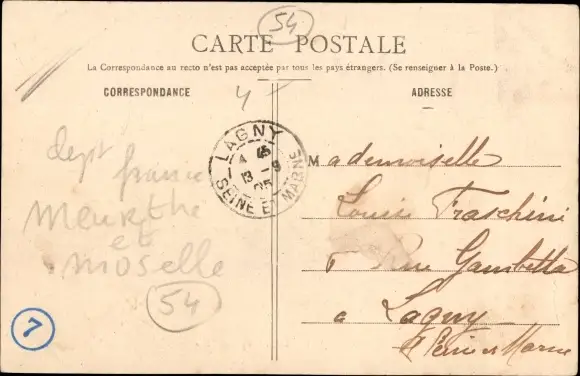 54
CARTE POSTALE
La Correspondance au recto n'est pas acceptée par tous les pays étrangers. (Se renseigner à la Poste.)
CORRESPONDANCE
ADRESSE
4
LAGNY
13 -9
05
SEINE ET MARNE
dept france
Meurthe
et
moselle
54
7
Mademoiselle
Louise Fraschini
Rue Gambetta
a Lagny
Seine et Marne